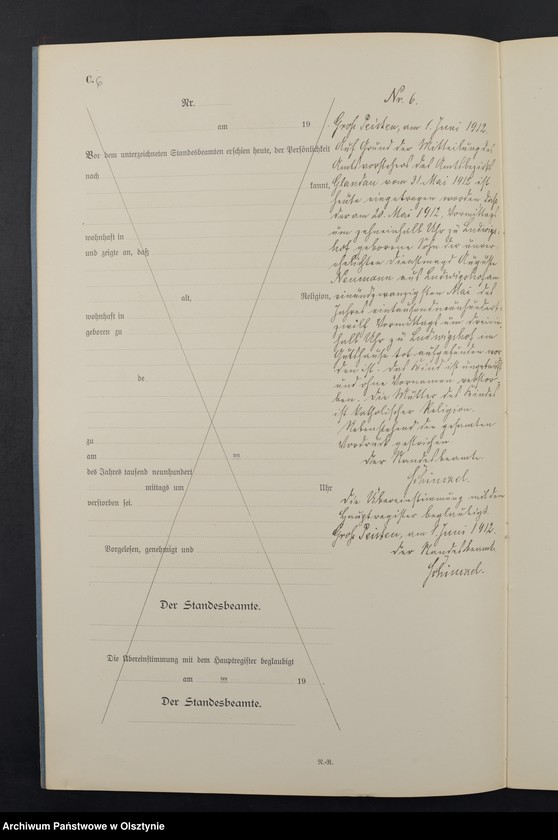 C. 6
Nr.
am 19
Vor dem unterzeichneten Standesbeamten erschien heute, der Persönlichkeit
nach
kannt,
wohnhaft in
und zeigte an, daß
alt, Religion,
wohnhaft in
geboren zu
de
zu
am ten
des Jahres tausend neunhundert
mittags um Uhr
verstorben sei.
Vorgelesen, genehmigt und
Der Standesbeamte.
Die Übereinstimmung mit dem Hauptregister beglaubigt
am ten 19
Der Standesbeamte.
N.-R.
Nr. 6.
Groß Peisten, am 1. Juni 1912.
Auf Grund der Mitteilung des
Amtsvorstehers des Amtsbezirks
Glandau vom 31. Mai 1912 ist
heute eingetragen worden, daß
der am 20. Mai 1912, Vormittags
um zehneinhalb Uhr zu Ludwigs-
hof geborene Sohn der unver-
ehelichten Dienstmagd Auguste
Neumann aus Ludwigshof am
einundzwanzigsten Mai des
Jahres eintausendneunhundert-
zwölf Vormittags um
halb Uhr zu Ludwigshof im
tot aufgefunden wor-
den ist. Das Kind ist ungetauft
und ohne Vornamen verstor-
ben. Die Mutter des Kindes
ist katholischer Religion.
Nebenstehend den gesamten
Vordruck gestrichen
Der Standesbeamte
Schinkel.
Die Übereinstimmung mit dem
Hauptregister beglaubigt
Groß Peisten, am 1. Juni 1912.
Der Standesbeamte
Schinkel.
Archiwum Państwowe w Olsztynie